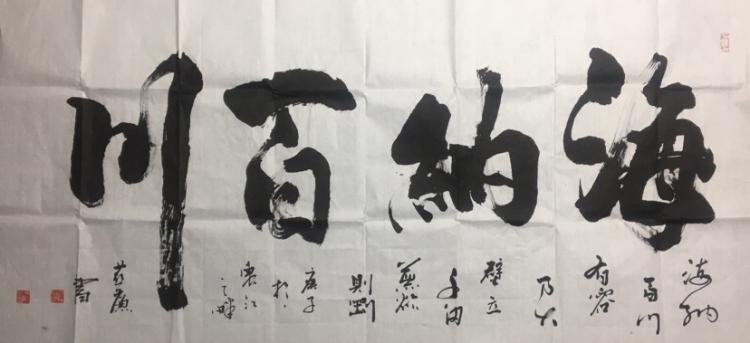 海納百川
海納
百川
有容
乃大
壁立
千仞
無欲
則剛
庚子
於
襄江
之畔
廉
書